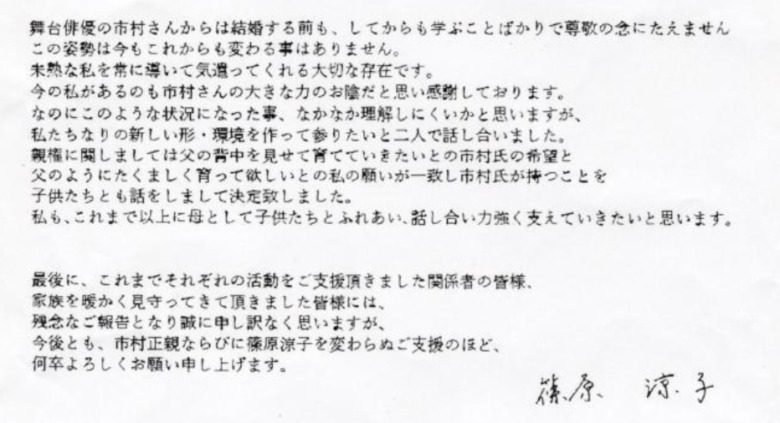 舞台俳優の市村さんからは結婚する前も、してからも学ぶことばかりで尊敬の念にたえません
この姿勢は今もこれからも変わる事はありません。
未熟な私を常に導いて気遣ってくれる大切な存在です。
今の私があるのも市村さんの大きな力のお陰だと思い感謝しております。
なのにこのような状況になった事、なかなか理解しにくいかと思いますが、
私たちなりの新しい形・環境を作って参りたいと二人で話し合いました。
親権に関しましては父の背中を見せて育てていきたいとの市村氏の希望と
父のようにたくましく育って欲しいとの私の願いが一致し市村氏が持つことを
子供たちとも話をしまして決定致しました。
私も、これまで以上に母として子供たちとふれあい、話し合い力強く支えていきたいと思います。
最後に、これまでそれぞれの活動をご支援頂きました関係者の皆様、
家族を暖かく見守ってきて頂きました皆様には、
残念なご報告となり誠に申し訳なく思いますが、
今後とも、市村正親ならびに篠原涼子を変わらぬご支援のほど、
何卒よろしくお願い申し上げます。
篠原 涼子